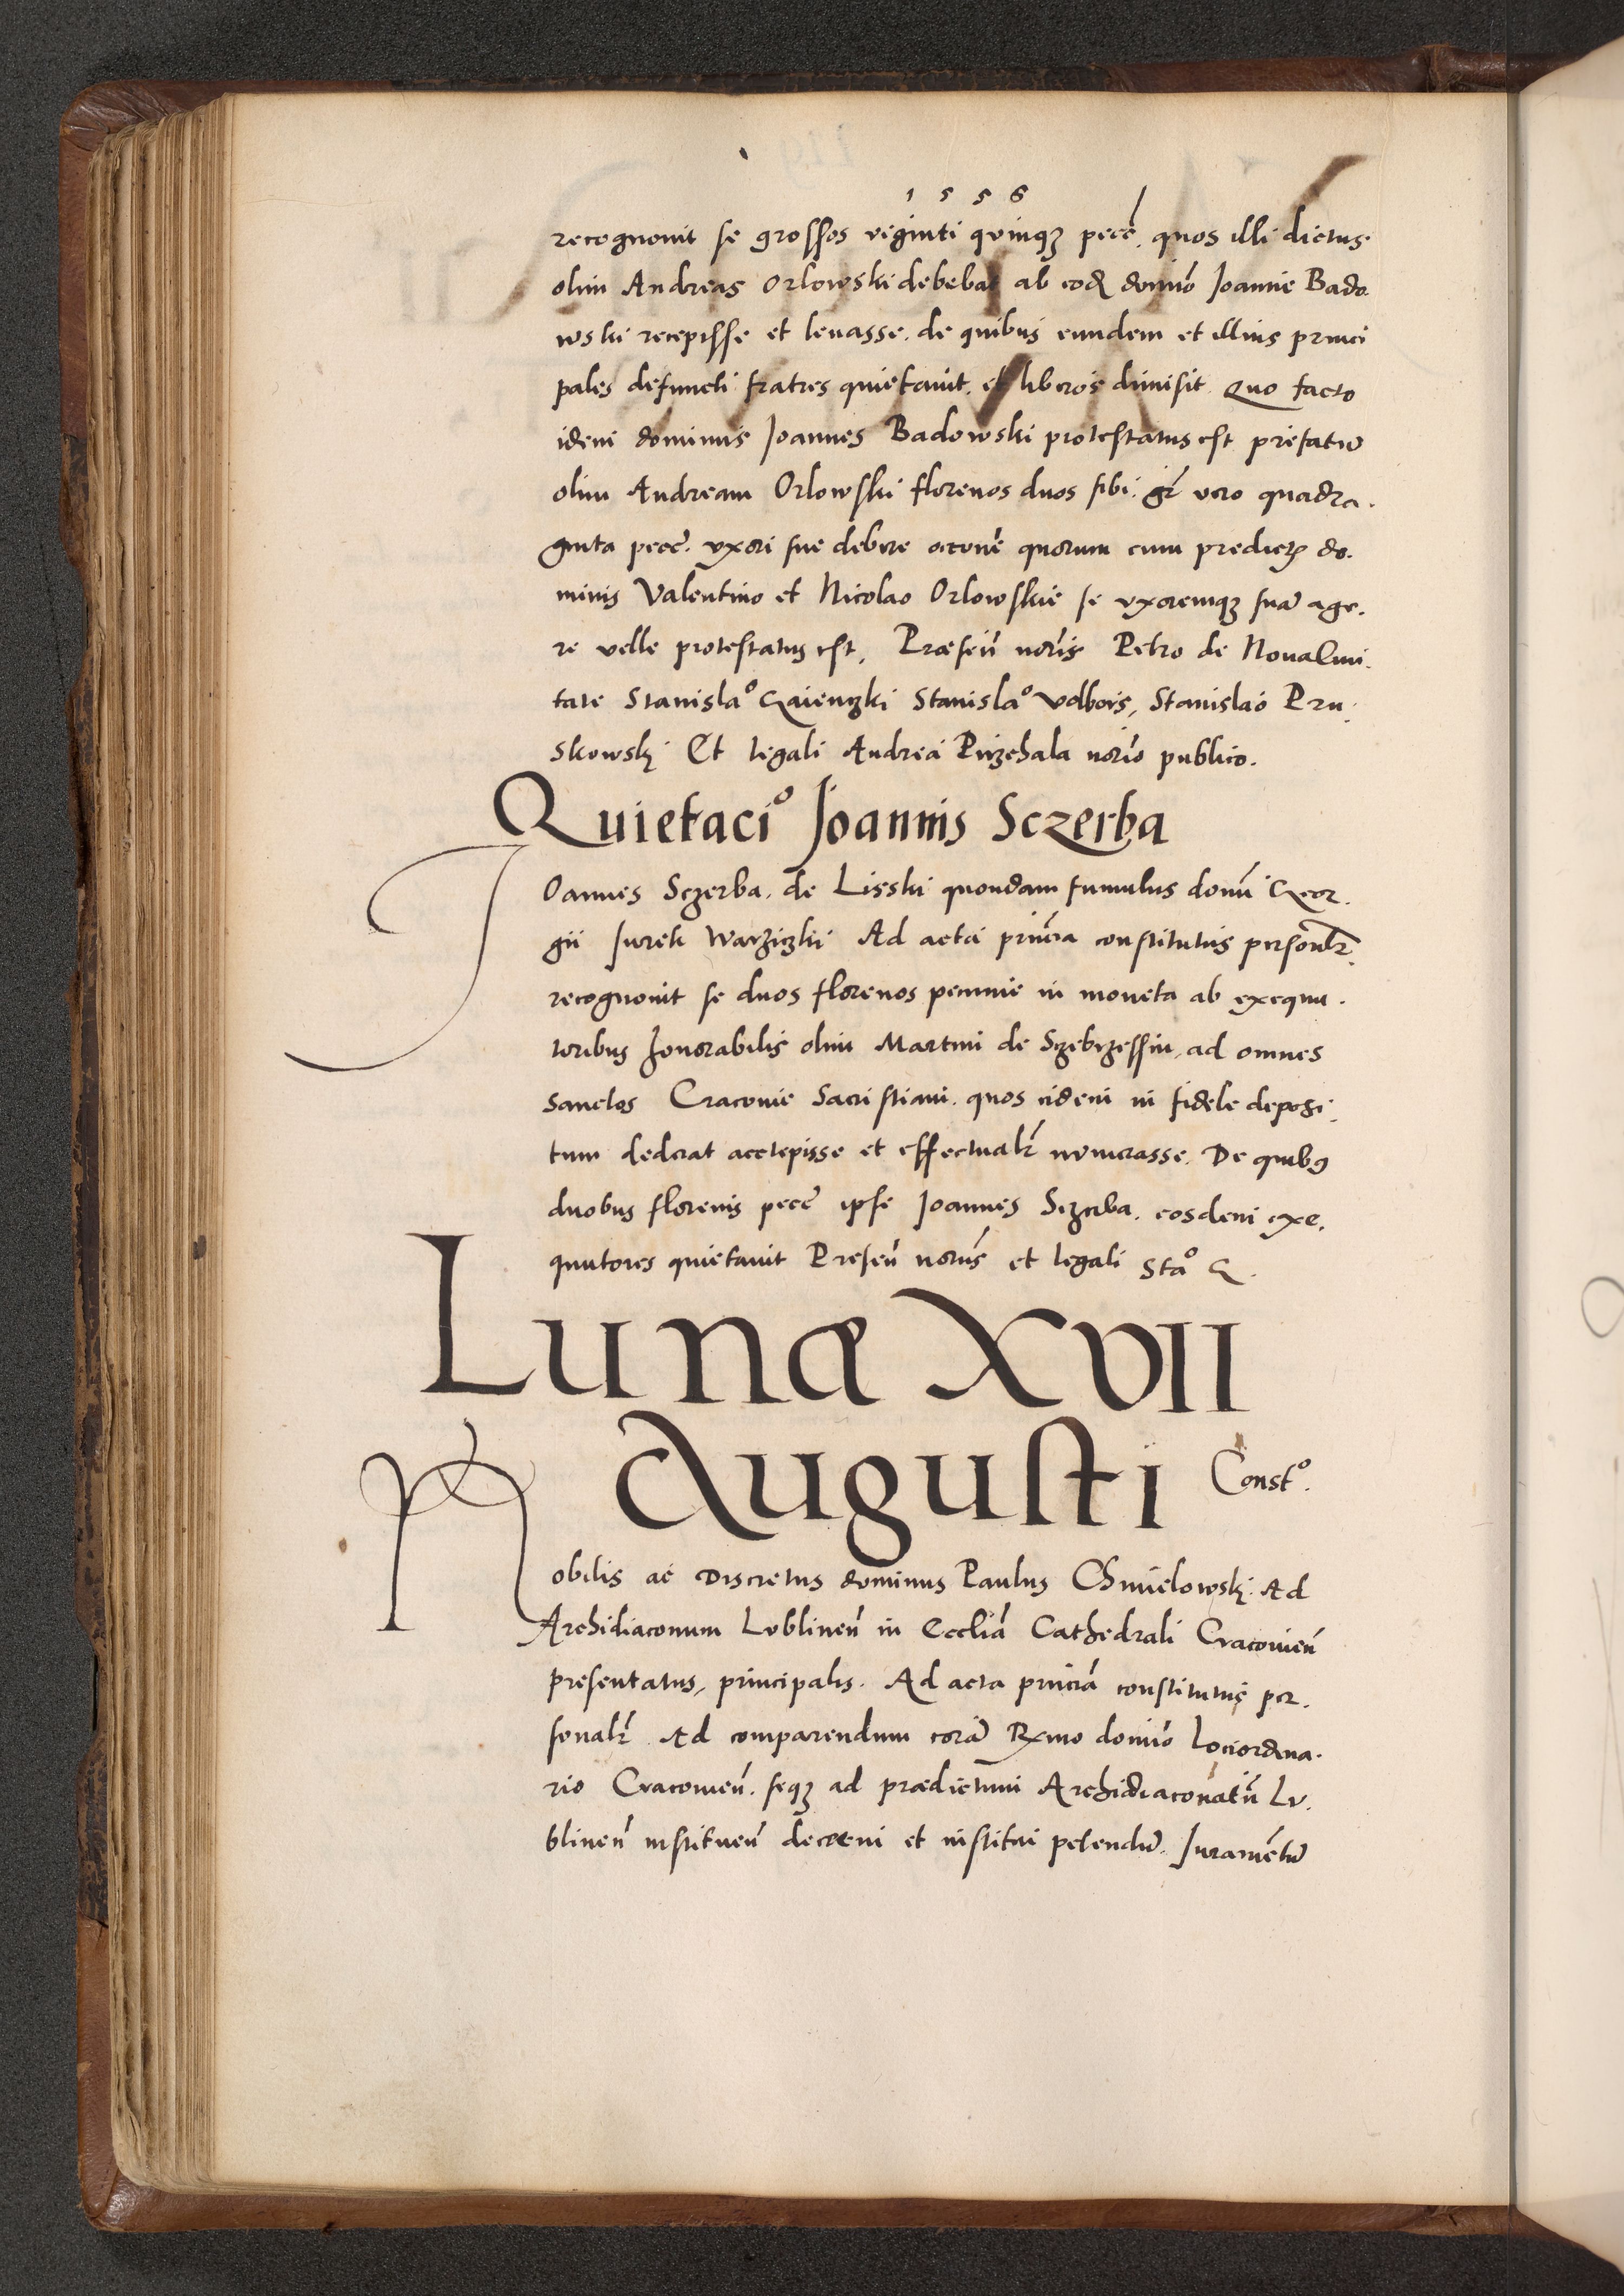 1556
recognouit se grossos viginti quinqȝ pecē. quos illi dictus
olim Andreas Orlowski debebat ab eod domīo Joanne Bado
wski recepisse et leuasse. de quibus eundem et illius princi
pales defuncti fratres quietauit. et liberos dimisit Quo facto
idem dominus Joannes Badowski protestatus est prefatū
olim Andream Orlowski florenos duos sibi. gr̄ vero quadra.
ginta pecē. vxori sue debere quorum cum predict do.
minis Valentino et Nicolao Orlowskie se vxoremqȝ suā age.
re velle protestatus est. Præsen̄ Petro de Noua Ciui.
tate Stanislaº Stanislaº Stanislao Pru
skowski Et legali Andrea norīo publico.
Quietaciº Joannis Sczerba
Joannes Sczerba. de Lisski quondam famulus domī Geor.
gii Jurek Warziczki Ad acta prn̄cia constitutus personalr̄
recognouit se duos florenos pecunie in moneta ab exequu.
toribus honorabilis olim Martini de Sczebrzessin, ad omnes
sanctos Cracouie Sacristiani. quos eidem in fidele deposi.
tum dederat accepisse et effectualr̄ numerasse. De quibꝰ
duobus florenis pecē ipse Joannes Sczerba. eosdem exe.
quutores quietauit Presen̄ et legali Staº G.
Lunæ XVII
Augusti Constº.
Nobilis ac Discretus dominus Paulus Chmielowskj. Ad
Archidiaconum Lublinen̄ in Ecclīa Cathedrali Cracouien̄
presentatus, principalis. Ad acta prn̄cia constitutus per.
sonalr̄ Ad comparendum corā Rx̄mo domīo Lociordina.
rio Cracouien̄. seqȝ ad prædictum Archidiaconatū Lu.
blinen̄ instituen̄ decerni et institui petendū. Juramētū